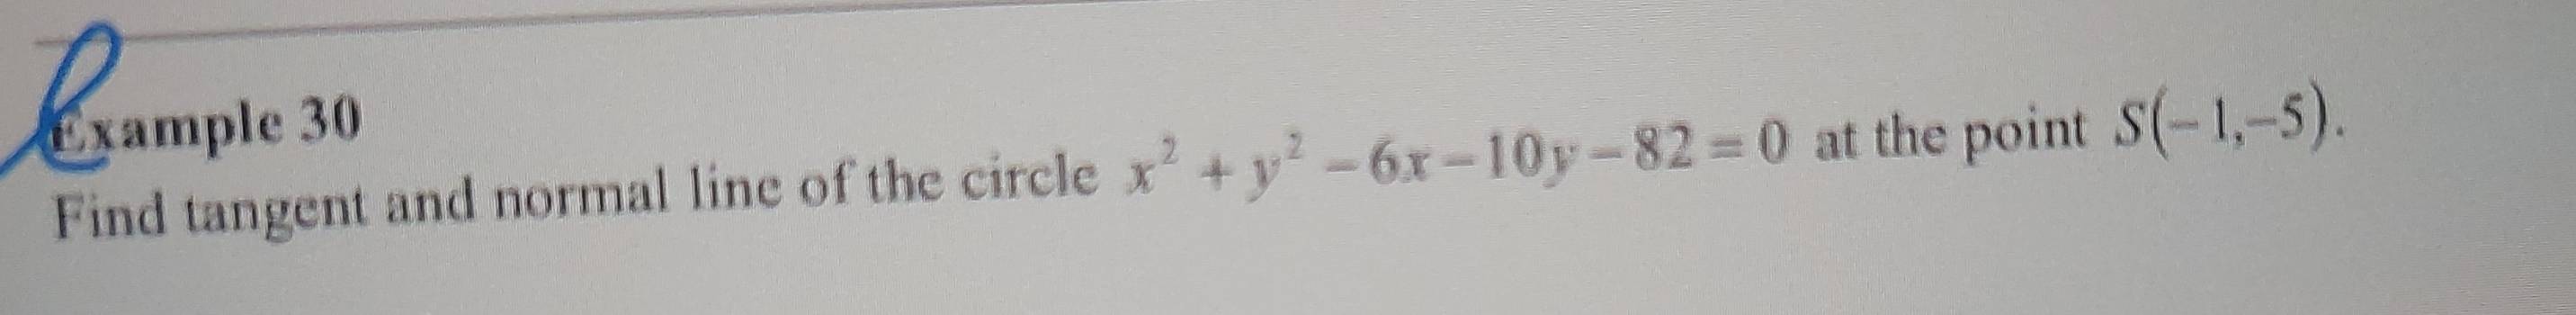 Example 30
Find tangent and normal line of the circle x² + y² − 6x − 10y − 82 = 0 at the point S(−1,−5).